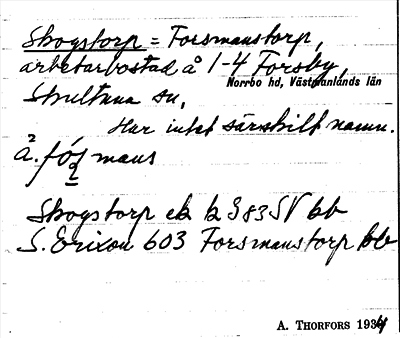 Skogstorp = Forsmanstorp,
arbetarbostad å 1-4 Forsby,
Norrbo hd, Västmanlands län
Skultuna sn,
Har intet särskilt namn.
mans
Skogstorp ek k 383 SV bb
S. Erixon 603 Forsmanstorp bb
A. THORFORS 1934